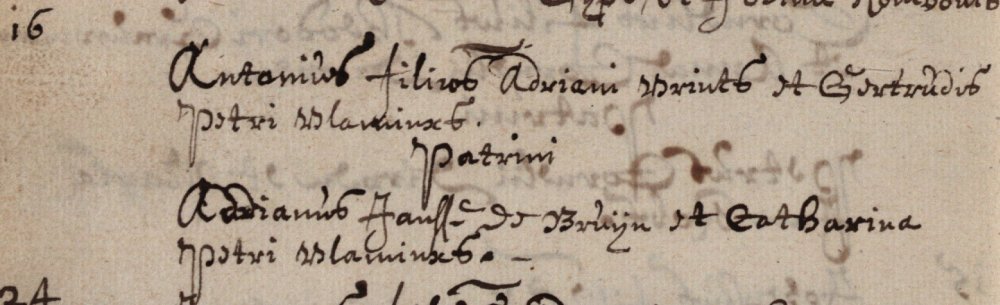 16
Antonius filius Adriani Vrints et Gertrudis
Petri Vlaminxs.
Patrini
Adrianus Jansse de Bruijn et Catharina
Petri Vlaminxs. –
24